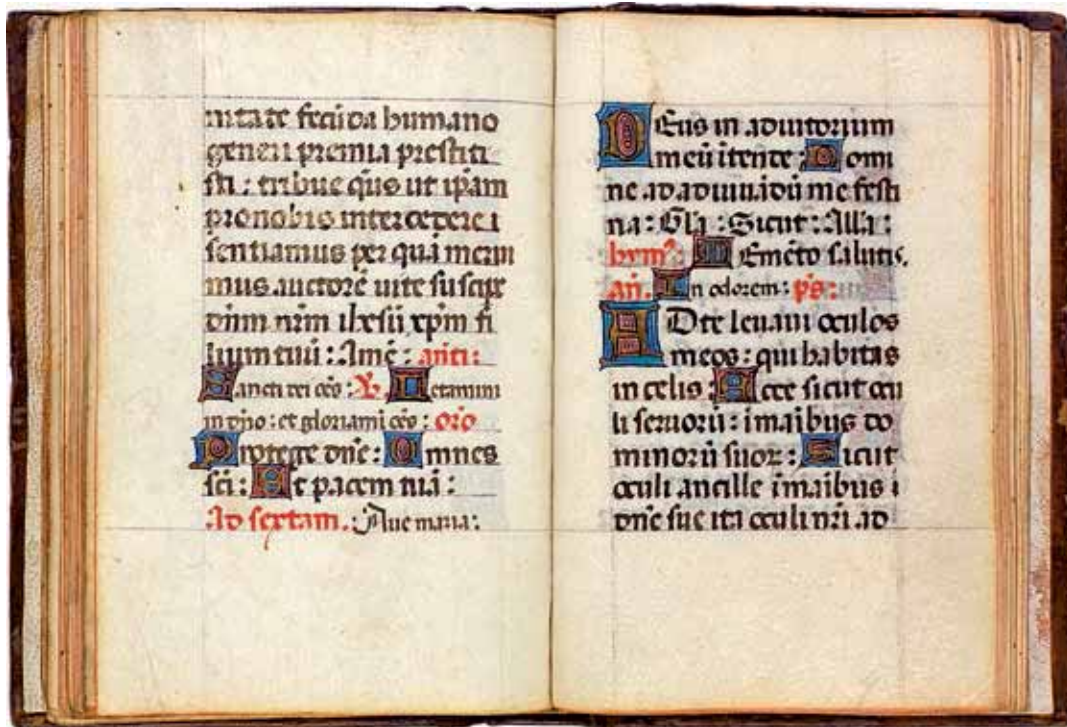 nitate fecūda humano
generi premia prestiti
sti : tribue q̄s ut ip̄am
pro nobis intercedere
sentiamus per quā merui
mus auctorē uite suscipe
dn̄m nr̄m ih̄esū xp̄m fi
lium tuū : Amē : anti :
Sancti dei oēs : ℣. Letamini
in dn̄o : et gloriamī oēs : oro
Protege dn̄e : Omnes
sc̄i : Et pacem tuā :
Ad sextam. Aue maria :
DEus in adiutorium
meū ītende : Domi
ne ad adiuuādū me festi
na : Gl̄a : Sicut : All̄a :
hym̄ : MEmēto salutis.
an̄. In odorem : p̄s :
ADte leuaui oculos
meos : qui habitas
in celis : Ecce sicut ocu
li seruorū : ī maībus do
minorū suor : Sicut
oculi ancille ī maībus
dn̄e sue ita oculi nr̄i ad